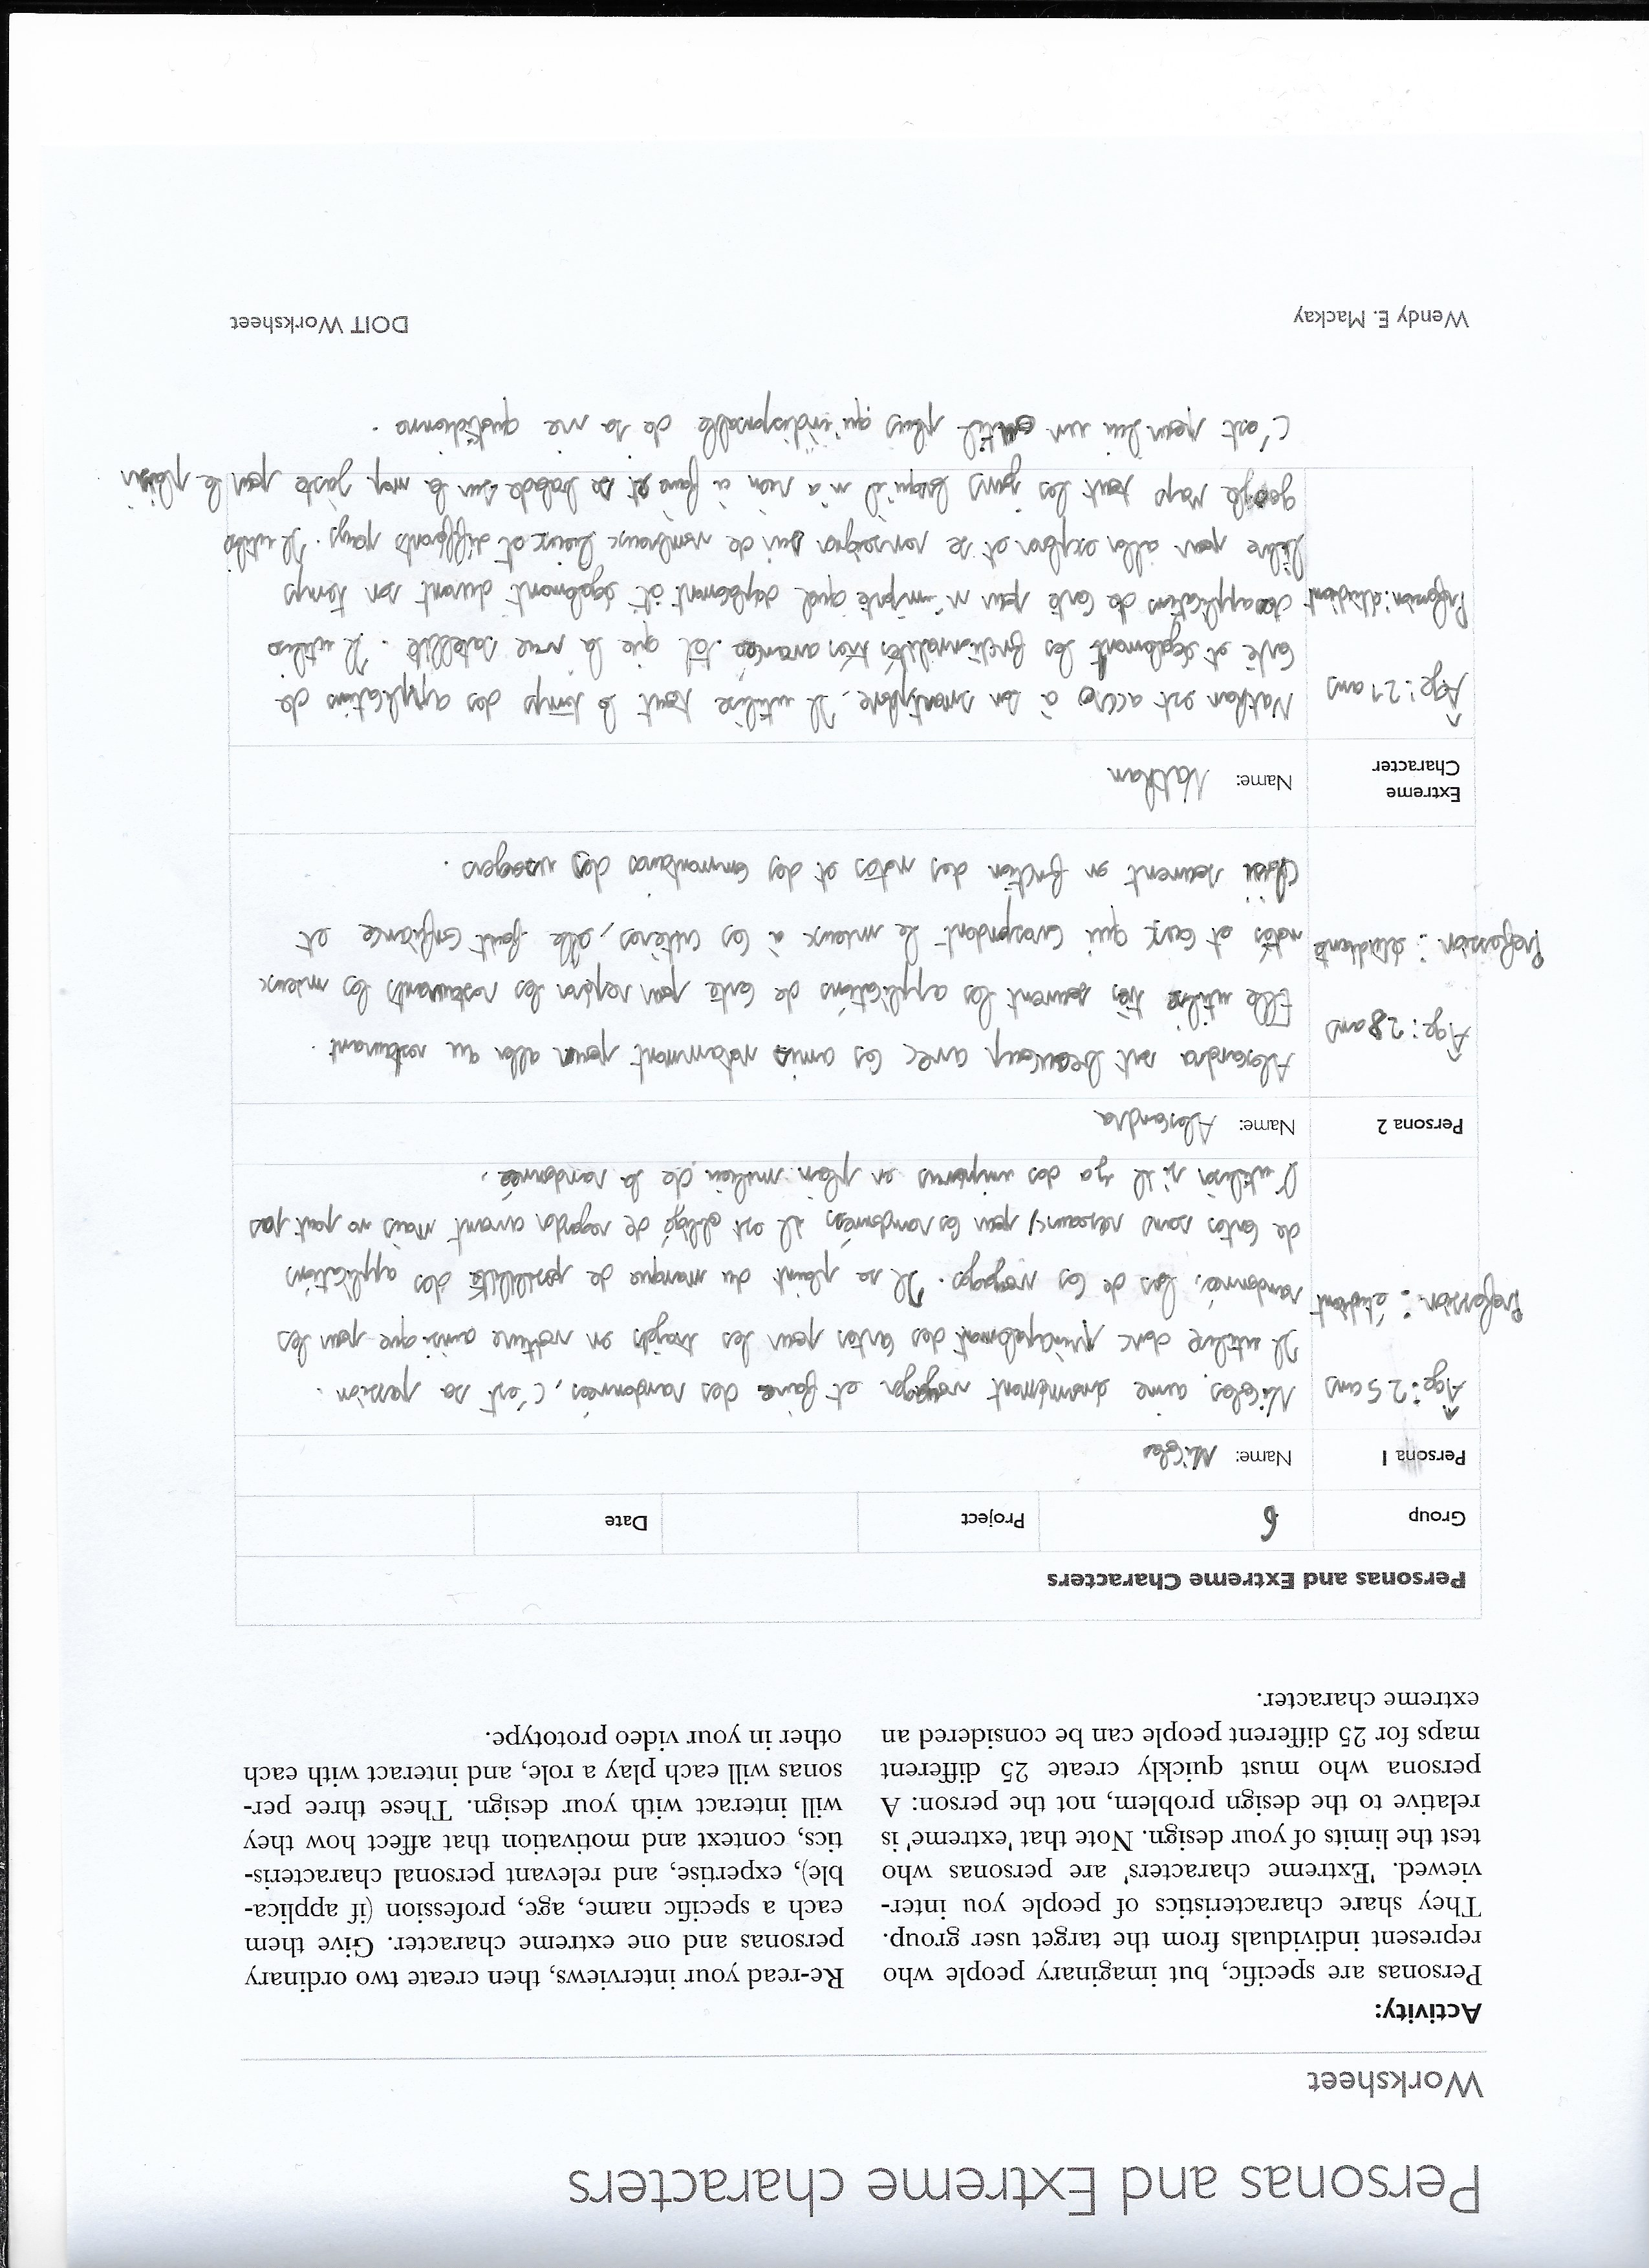 Personas and Extreme characters
Worksheet
Activity:
Personas are specific, but imaginary people who
represent individuals from the target user group.
They share characteristics of people you inter-
viewed. 'Extreme characters' are personas who
test the limits of your design. Note that 'extreme' is
relative to the design problem, not the person: A
persona who must quickly create 25 different
maps for 25 different people can be considered an
extreme character.
Re-read your interviews, then create two ordinary
personas and one extreme character. Give them
each a specific name, age, profession (if applica-
ble), expertise, and relevant personal characteris-
tics, context and motivation that affect how they
will interact with your design. These three per-
sonas will each play a role, and interact with each
other in your video prototype.
Personas and Extreme Characters
Group 6 Project Date
Persona 1 Name: Nicolas
Âge : 25 ans
Profession : étudiant
Nicolas aime énormément voyager et faire des randonnées, c'est sa passion.
Il utilise donc principalement des cartes pour les trajets en voiture ainsi que pour les
randonnés, lors de ces voyages. Il se plaint du manque de possibilité des applications
de cartes sans réseaux, pour ces randonnées il est obligé de regarder avant mais ne peut pas
l'utiliser si il y a des imprévus en plein milieu de la randonnée.
Persona 2 Name: Alexandra
Âge : 28 ans
Profession : étudiante
Alexandra sort beaucoup avec ces amis notamment pour aller au restaurant.
Elle utilise très souvent les applications de carte pour repérer les restaurants les mieux
notés et ceux qui correspondent le mieux à ces critères, elle fait confiance et
choisi souvent en fonction des notes et des commentaires des usagers.
Extreme
Character
Name: Nathan
Âge : 21 ans
Profession : étudiant
Nathan est accro à son smartphone. Il utilise tout le temps des applications de
carte et également les fonctionnalités très avancée tel que la vue satellite. Il utilise
des applications de carte pour n'importe quel déplacement et également durant son temps
libre pour aller explorer et se renseigner sur de nombreux lieux et différents pays. Il utilise
google Maps tout les jours lorsqu'il n'a rien à faire et se balade sur la map juste pour le plaisir
c'est pour lui un outil plus qu'indispensable de sa vie quotidienne.
Wendy E. Mackay
DOIT Worksheet